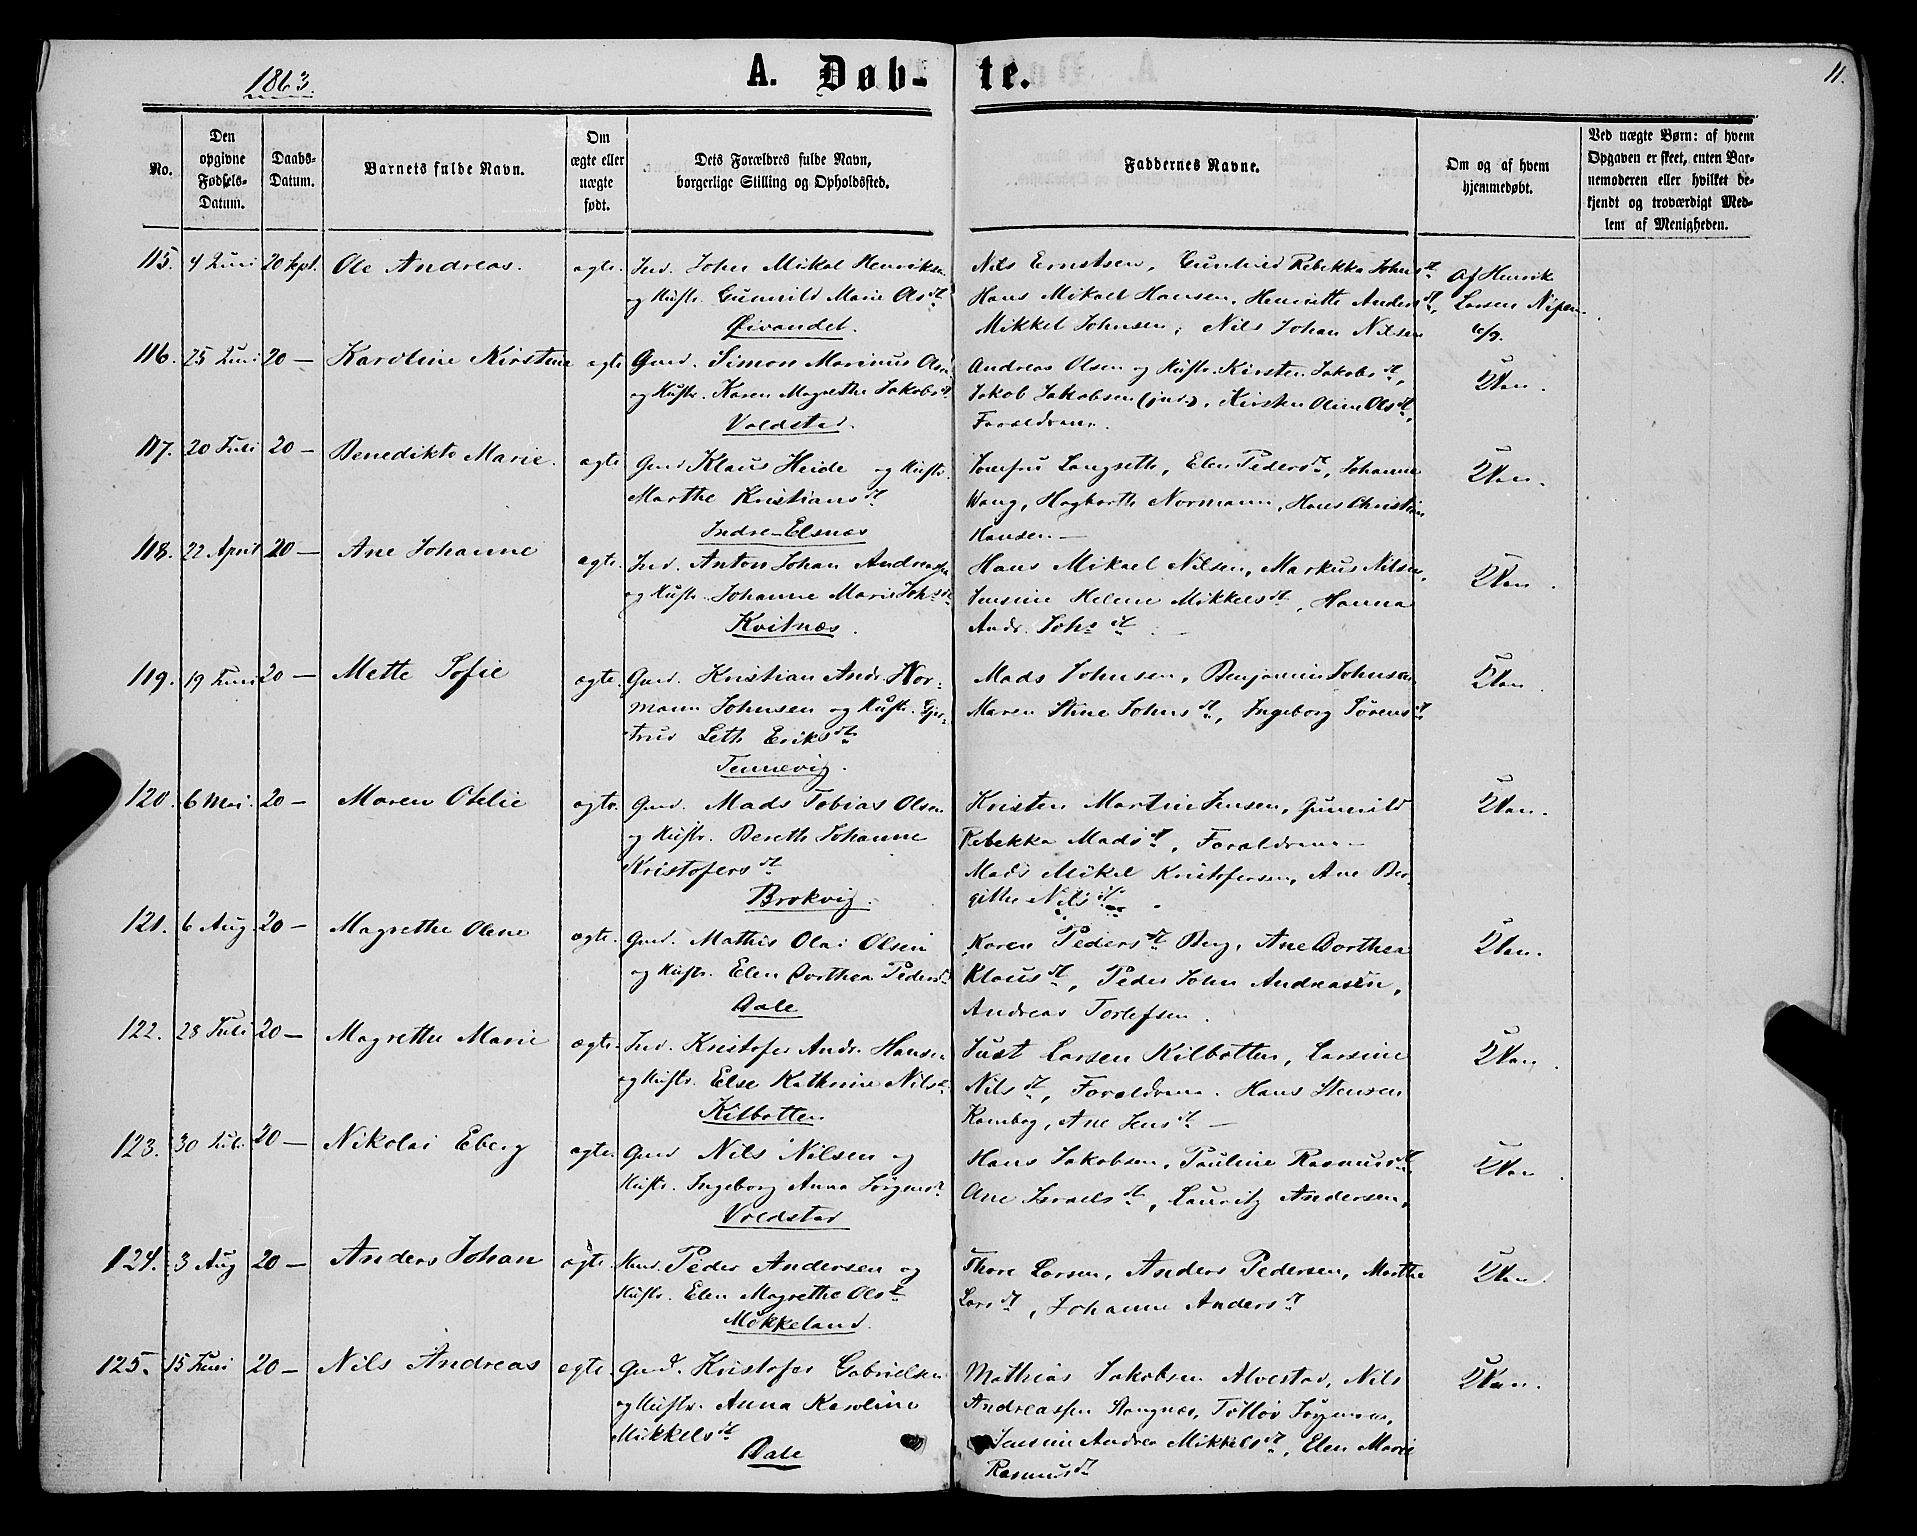 1863.
A. Døb- te.
11.
No.
Den opgivne Fødsels-Datum.
Daabs-Datum.
Barnets fulde Navn.
Om ægte eller uægte født.
Dets Forældres fulde Navn, borgerlige Stilling og Opholdssted.
Faddernes Navne.
Om og af hvem hjemmedøbt.
Ved uægte Børn: af hvem Opgaven er skeet, enten Barnemoderen eller hvilket bekjendt og troværdigt Medlem af Menigheden.
115. 4 Juni 20 Sept. Ole Andreas. ægte. Ind. John Mikal Henriksen
og Hustr. Gunnild Marie Olsdt
Øivandet.
Nils Erntsen, Gunhild Rebekka Johnsdt
Hans Mikael Hansen, Henriette Andersdt,
Mikkel Johnsen, Nils Johan Nilsen
Af Henrik
Larsen Nipen
116. 25 Juni 20 — Karoline Kirstine ægte Gmd. Simon Marinus Olsen
og Hustr. Karen Magrethe Jakobsdt
Voldstad.
Andreas Olsen og Hustr. Kirsten Jakobsdt,
Jakob Jakobsen (jun.), Kirsten Oline Olsdt,
Forældrene.
117. 20 Juli 20 — Benedikte Marie. ægte Gmd Klaus Heide og Hustr.
Marthe Kristiansdt
Indre-Elsnæs
Jomfru Langseth, Elen Pedersdt, Johanna
Wang, Hagbarth Normann, Hans Christian
Hansen —
118. 22 April 20 — Ane Johanne ægte. Ind. Anton Johan Andreassen
og Hustr. Johanne Marie Johsdt
Kvitnæs.
Hans Mikael Nilsen, Markus Nilsen,
Jensine Helene Mikkelsdt, Hanna
Andr. Johsdt.
119. 19 Juni 20 — Mette Sofie ægte. Gmd. Kristian Andr. Nor-
mann Johnsen og Hustr. Gjer-
trud Leth Eriksdt
Tennevig.
Mads Johnsen, Benjamin Johnsen
Maren Stine Johnsdt, Ingeborg Sørensdt
120. 6 Mai 20 — Maren Otelie ægte. Gmd. Mads Tobias Olsen
og Hustr. Bereth Johanne
Kristofersdt
Brokvig.
Kristen Martin Jensen, Gunnild
Rebekka Madsdt, Forældrene —
Mads Mikel Kristofersen, Ane Ber-
gitte Nilsdt
121. 6 Aug 20 — Magrethe Olene ægte. Gmd. Mathis Olai Olsen
og Hustr. Elen Dorthea Pedersdt
Dale
Karen Pedersdt Berg, Ane Dorthea
Klausdt, Peder John Andreasen,
Andreas Torlefsen.
122. 28 Juli 20 — Magrethe Marie ægte. Ind. Kristofer Andr. Hansen
og Hustr. Else Kathrine Nilsdt
Kilbotten
Just Larsen Kilbotten, Larsine
Nilsdt, Forældrene. Hans Stensen
Ramberg, Ane Jensdt —
123. 30 Juli 20 — Nikolai Eberg ægte. Gmd Nils Nilsen og
Hustr. Ingeborg Anna Jørgensdt
Voldstad
Hans Jakobsen, Pauline Rasmusdt
Ane Israelsdt, Lauritz Andersen,
124. 3 Aug 20 — Anders Johan ægte Hmd. Peder Andersen og
Hustr. Elen Magrethe Olsdt
Møkkeland.
Thore Larsen, Anders Pedersen, Marthe
Larsdt, Johanne Andersdt
125. 15 Juni 20 — Nils Andreas ægte. Gmd. Kristofer Gabrielsen
og Hustr. Anna Karoline
Mikkelsdt
Dale
Mathias Jakobsen Alvestad, Nils
Andreassen Stangnæs, Tolløv Jørgensen,
Jensine Andrea Mikkelsdt, Elen Marie
Rasmusdt